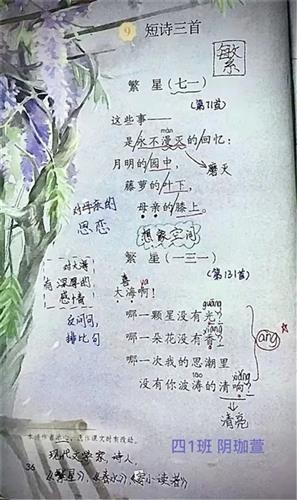 9 短诗三首
繁
繁星（七一）
（第71首）
这些事——
màn
是永不漫灭的回忆：
月明的园中，
磨灭
藤萝的叶下，
母亲的膝上。
对母亲的
思恋
想象空间
繁星（一三一）
（第131首）
对大海
有深厚的
感情
喜 ya
大海啊！
guāng
哪一颗星没有光？
xiāng
哪一朵花没有香？
ang
反问句，
排比句
哪一次我的思潮里
tāo xiǎng
没有你波涛的清响？
清亮
本诗作者冰心，选作课文时有改动。
现代文学家，诗人，
36
《繁星》、《春水》《寄小读者》
四1班 阴珈萱